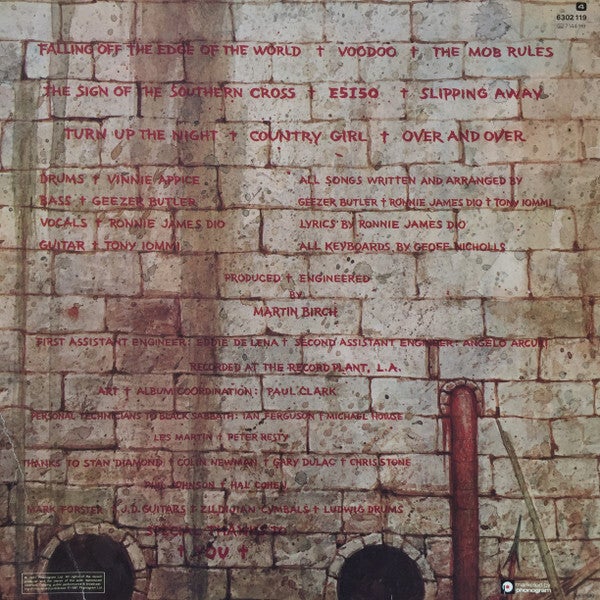 4
6302 119
FALLING OFF THE EDGE OF THE WORLD † VOODOO † THE MOB RULES
THE SIGN OF THE SOUTHERN CROSS † E5150 † SLIPPING AWAY
TURN UP THE NIGHT † COUNTRY GIRL † OVER AND OVER
DRUMS † VINNIE APPICE
BASS † GEEZER BUTLER
VOCALS † RONNIE JAMES DIO
GUITAR † TONY IOMMI
ALL SONGS WRITTEN AND ARRANGED BY
GEEZER BUTLER † RONNIE JAMES DIO † TONY IOMMI
LYRICS BY RONNIE JAMES DIO
ALL KEYBOARDS BY GEOFF NICHOLLS
PRODUCED † ENGINEERED
BY
MARTIN BIRCH
FIRST ASSISTANT ENGINEER: EDDIE DELENA † SECOND ASSISTANT ENGINEER: ANGELO ARCURI
RECORDED AT THE RECORD PLANT, L.A.
ART † ALBUM COORDINATION: PAUL CLARK
PERSONAL TECHNICIANS TO BLACK SABBATH: IAN FERGUSON † MICHAEL HOWSE
LES MARTIN † PETER RESTY
THANKS TO STAN DIAMOND † COLIN NEWMAN † GARY DULAC † CHRIS STONE
PHIL JOHNSON † HAL COHEN
MARK FORSTER † J.D. GUITARS † ZILDJIAN CYMBALS † LUDWIG DRUMS
SPECIAL THANKS TO
† YOU †
marketed by
phonogram